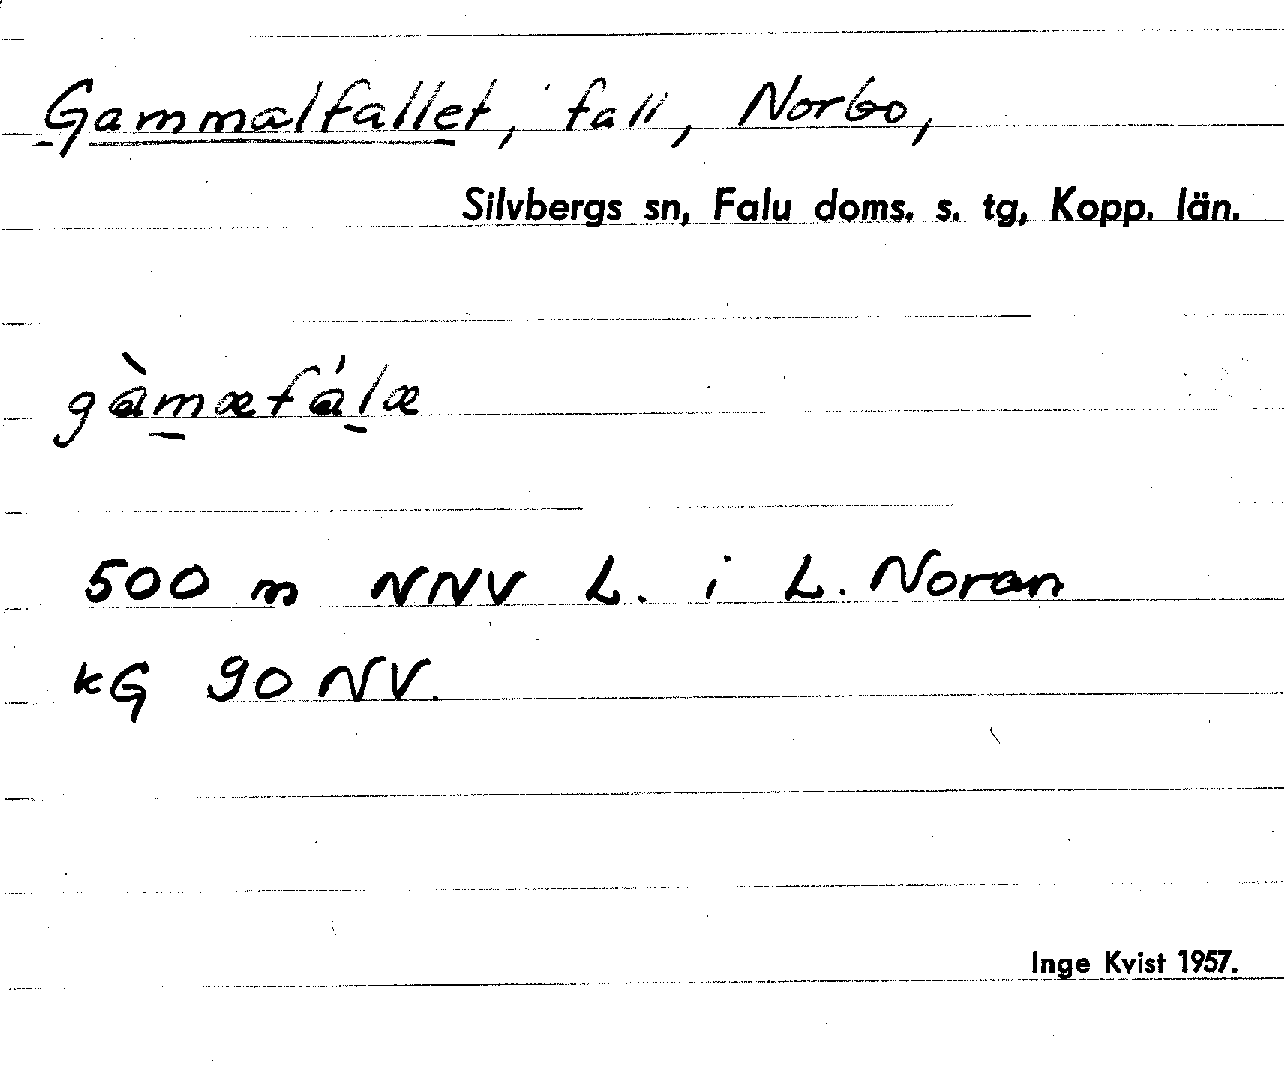 Gammalfallet, fall, Norbo,
Silvbergs sn, Falu doms. s. tg, Kopp. län.
gàm̱æfáḻæ
500 m NNV L. i L. Noran
kG 90 NV.
Inge Kvist 1957.